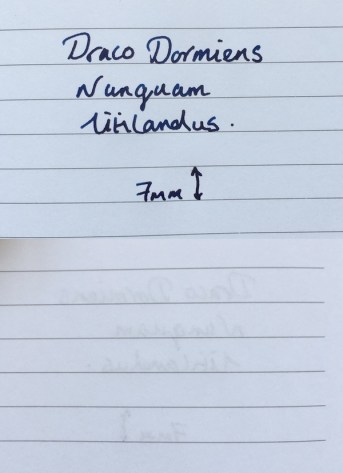 Draco Dormiens
Nunquam
Titilandus.
7mm